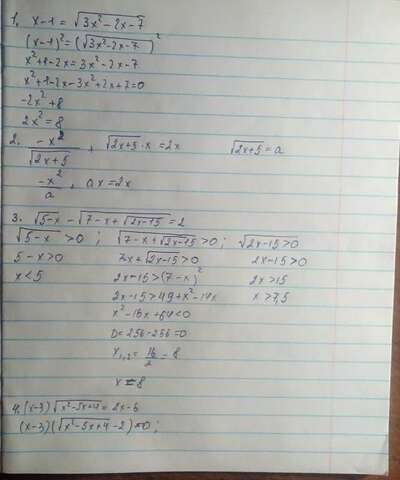 1. x-1 = √3x²-2x-7
(x-1)² = (√3x²-2x-7)²
x²+1-2x = 3x²-2x-7
x²+1-2x-3x²+2x+7=0
-2x²+8
2x²=8
2. -x²/√2x+5, √2x+5·x=2x √2x+5=a
-x²/a, ax=2x
3. √5-x - √7-x+√2x-15=2
√5-x >0; √7-x+√2x-15>0; √2x-15>0
5-x>0 7x+√2x-15>0 2x-15>0
x<5 2x-15>(7-x)² 2x>15
2x-15>49+x²-14x x>7,5
x²-16x+64<0
D=256-256=0
x₁,₂=16/2=8
x=8
4. (x-3)√x²-5x+4=2x-6
(x-3)(√x²-5x+4-2)=0;